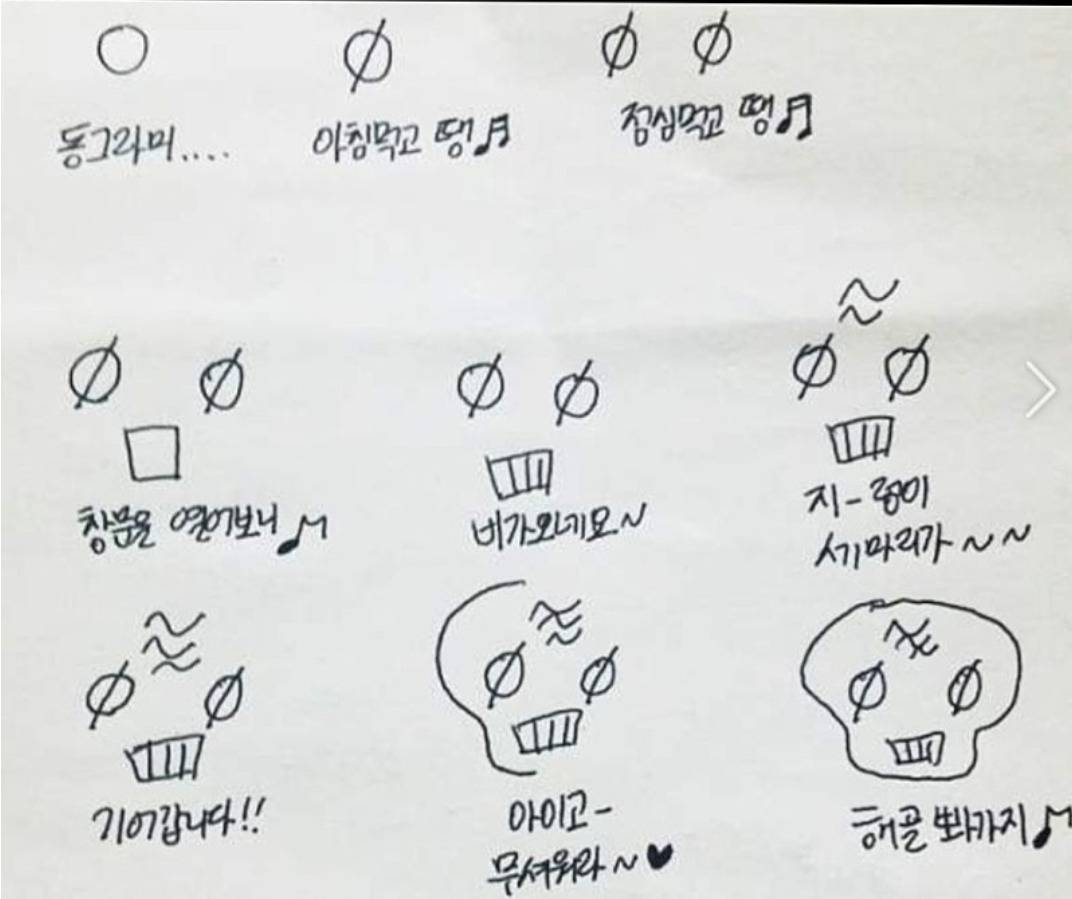 동그라미....
아침먹고 땡♬
점심먹고 땡♬
창문을 열어보니♪
비가오네요~
지-렁이
세마리가 ~ ~
기어갑니다!!
아이고-
무서워라 ~ ♥
해골 빠가지♪